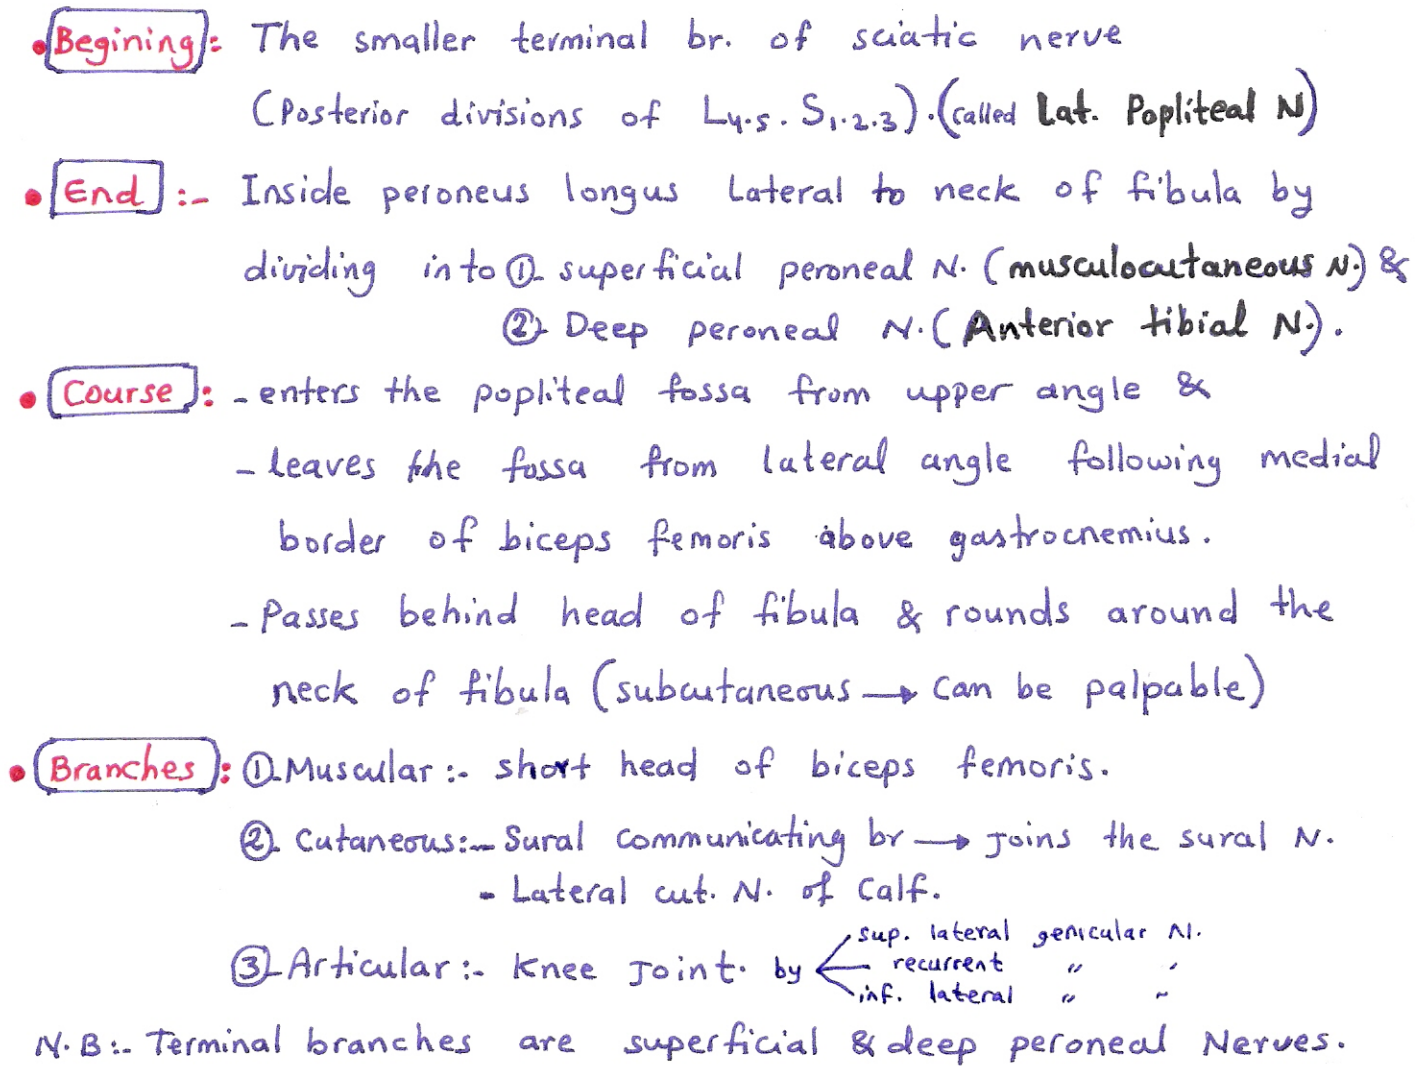 • Begining : The smaller terminal br. of sciatic nerve
(Posterior divisions of L4.5. S1.2.3). (called Lat. Popliteal N)
• End :- Inside peroneus longus Lateral to neck of fibula by
dividing into ①- superficial peroneal N. (musculocutaneous N.) &
②- Deep peroneal N. (Anterior tibial N.).
• Course : - enters the popliteal fossa from upper angle &
- leaves the fossa from lateral angle following medial
border of biceps femoris above gastrocnemius.
- Passes behind head of fibula & rounds around the
neck of fibula (subcutaneous → can be palpable)
• Branches : ①- Muscular :- short head of biceps femoris.
②- Cutaneous :- - Sural communicating br → Joins the sural N.
- Lateral cut. N. of Calf.
sup. lateral genicular N.
③- Articular :- Knee Joint. by recurrent " "
inf. lateral " "
N.B :- Terminal branches are superficial & deep peroneal Nerves.